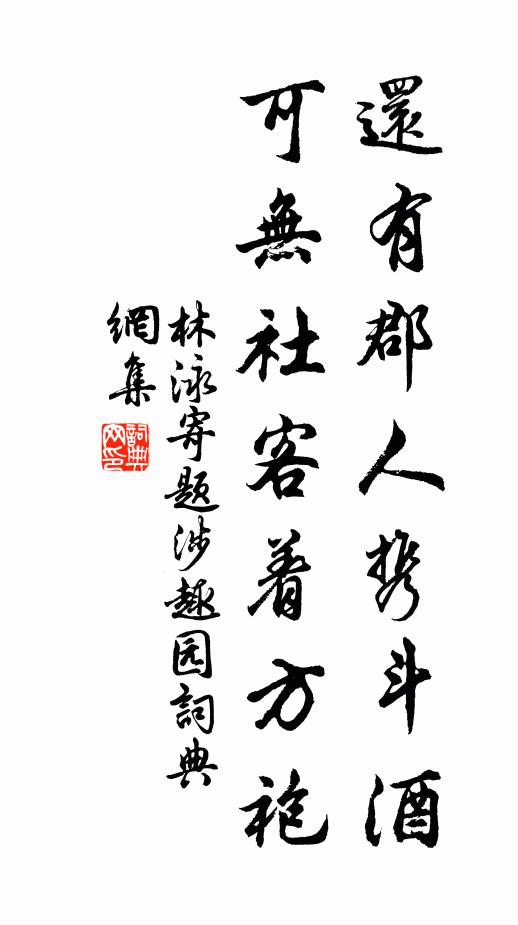 還有郡人携斗酒
可無社客着方袍
林泳寄題涉趣园詞典
網集
詞典
网印